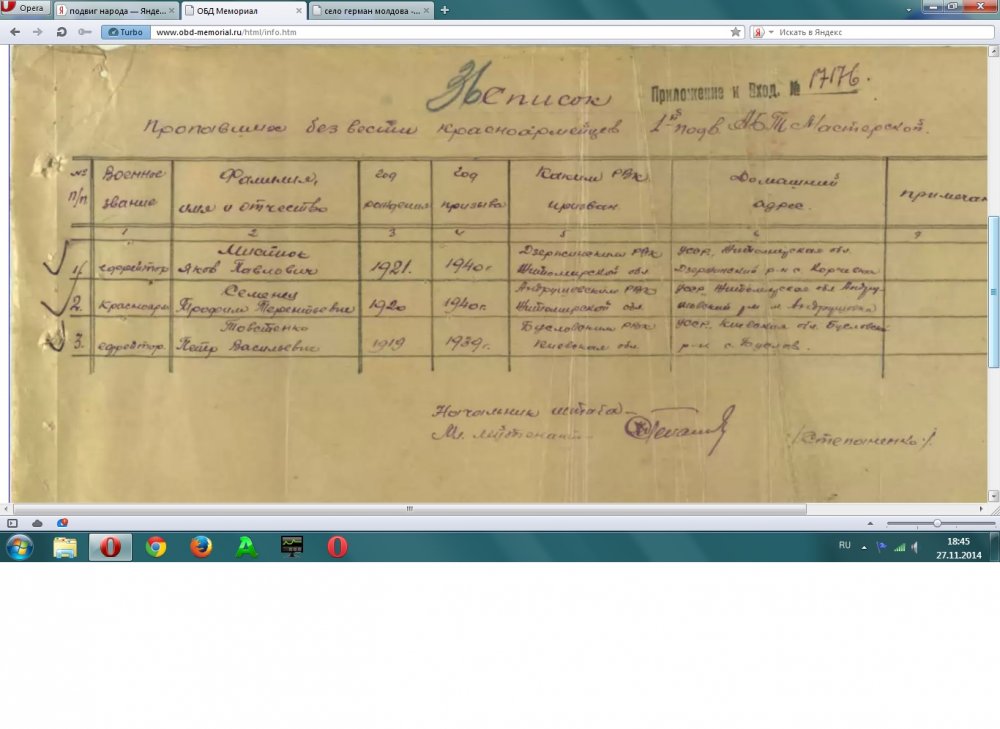 Opera
подвиг народа — Янде...
ОБД Мемориал
село герман молдова -...
Turbo
www.obd-memorial.ru/html/info.htm
Искать в Яндекс
36 Список
Приложение к Вход. № 17176.
Пропавших без вести красноармейцев 1-й подв. АБТ Мастерской.
№ п/п
Военное звание
Фамилия, имя и отчество
Год рождения
Год призыва
Каким РВК призван
Домашний адрес.
примечан
1 2 3 4 5 6 7
Дзержинским РВК УССР, Житомирская обл.
1. ефрейтор Яков Павлович 1921. 1940г Житомирской обл. Дзержинский р-н с.
Андрушевским РВК УССР, Житомирская обл Андру-
2. Красноарм Трофим Терентьевич 1920 1940г. Житомирской обл м. Андрушовка
Товстенко РВК УССР, Киевская обл.
3. ефрейтор. Петр Васильевич 1919 1939г. Киевская обл. р-н с.
Начальник штаба —
Мл. лейтенант —
/Степаненко/.
RU
18:45
27.11.2014